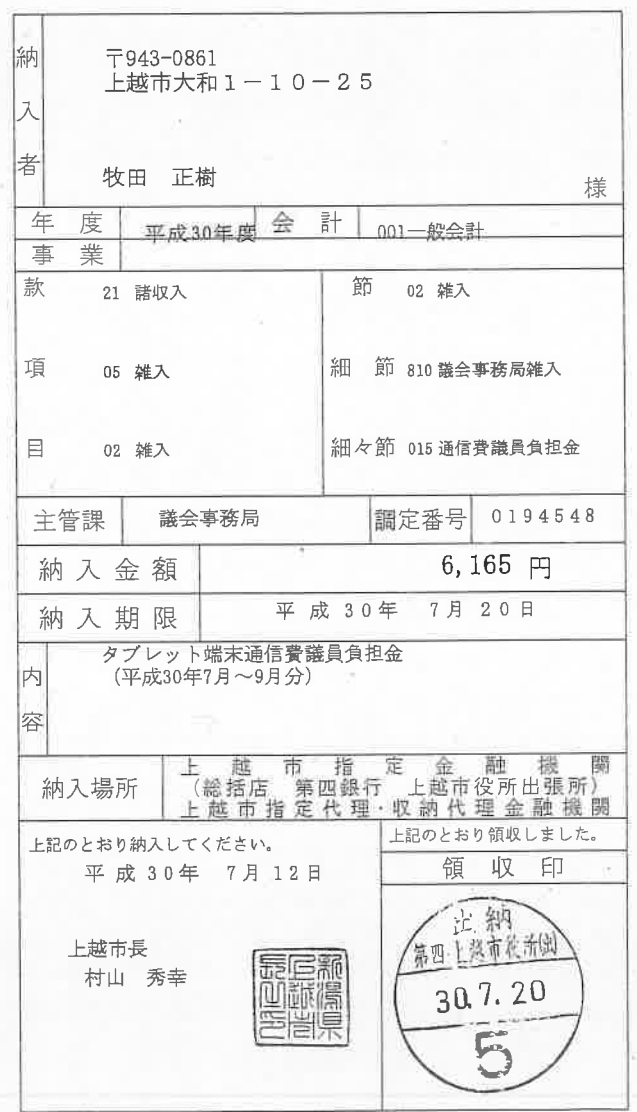 納入者
〒943-0861
上越市大和1－10－25
牧田 正樹
様
年度 平成30年度 会計 001一般会計
事業
款 21 諸収入 節 02 雑入
項 05 雑入 細節 810 議会事務局雑入
目 02 雑入 細々節 015 通信費議員負担金
主管課 議会事務局 調定番号 0194548
納入金額 6,165 円
納入期限 平成30年 7月20日
内容
タブレット端末通信費議員負担金
(平成30年7月～9月分)
納入場所
上越市指定金融機関
(総括店 第四銀行 上越市役所出張所)
上越市指定代理・収納代理金融機関
上記のとおり納入してください。
平成30年 7月12日
上越市長
村山 秀幸
新潟県上越市長之印
上記のとおり領収しました。
領収印
出納
第四・上越市役所(出)
30.7.20
5